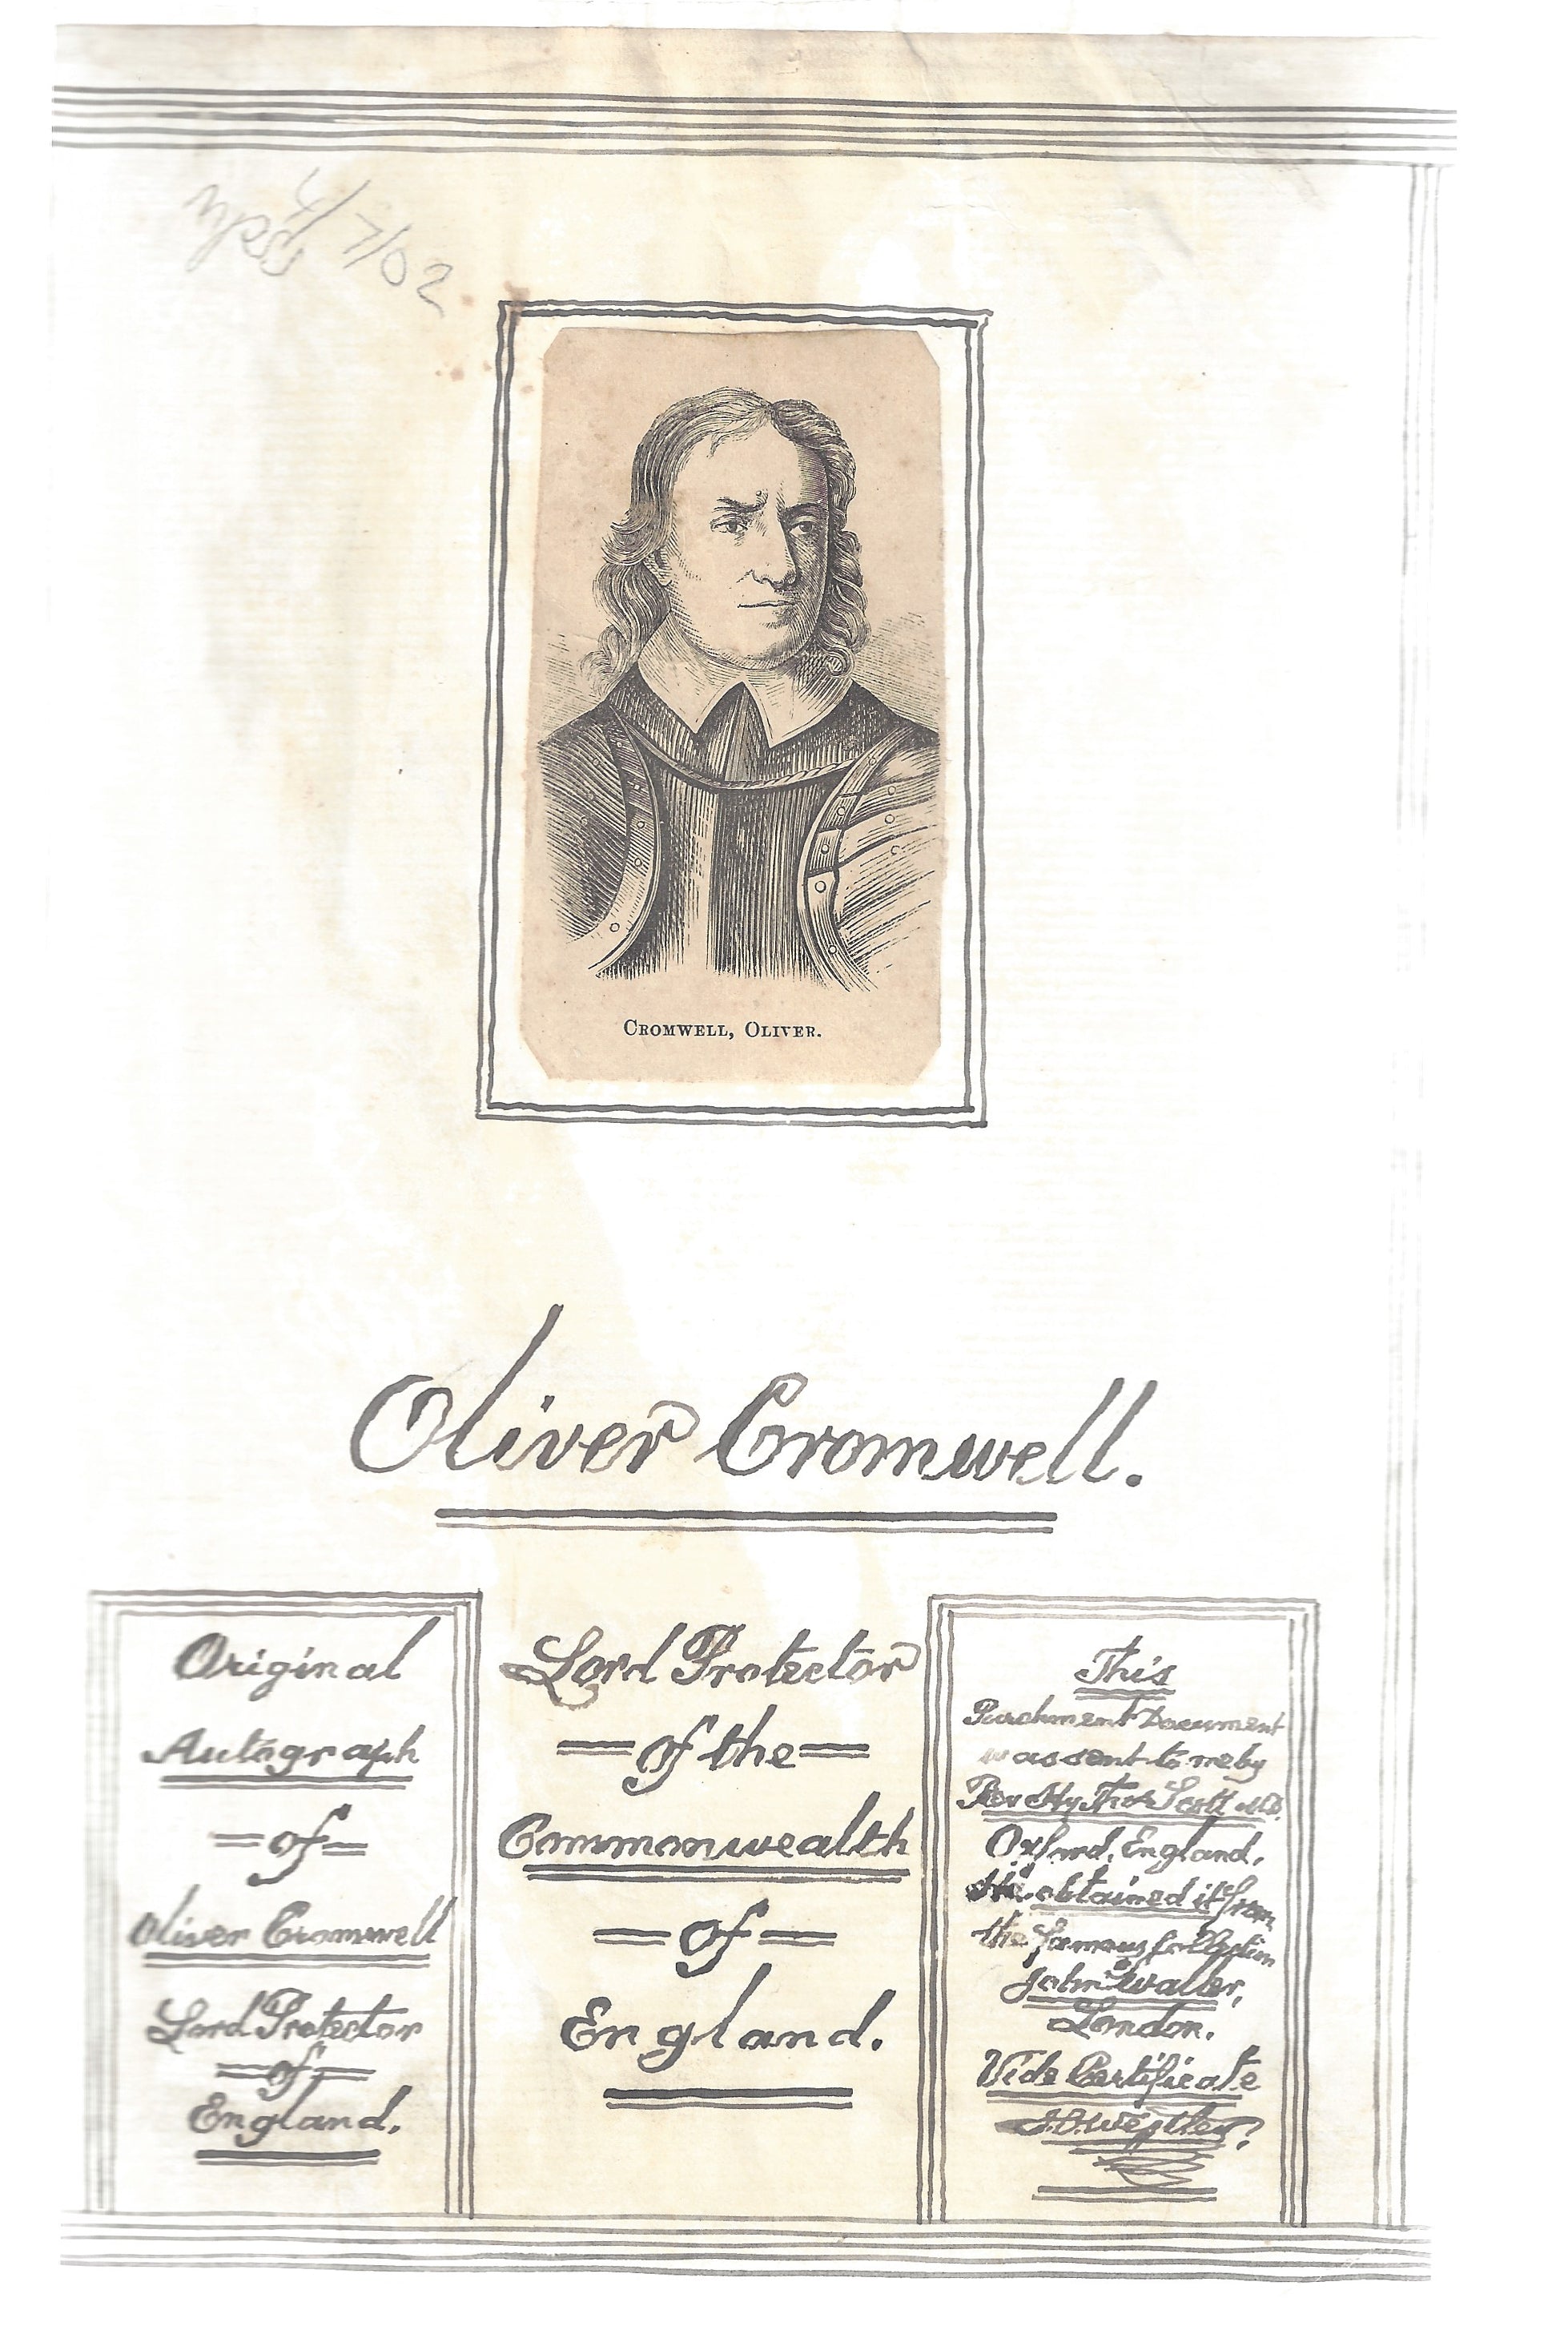 4/7/02
CROMWELL, OLIVER.
Oliver Cromwell.
Original
Autograph
=of=
Oliver Cromwell
Lord Protector
=of=
England.
Lord Protector
=of the=
Commonwealth
=of=
England.
This
Parchment Document
was sent to me by
Rev Hy Thos Scott M.D.
Oxford, England.
He obtained it from
the famous Collection
of
John Waller,
London.
Vide Certificate